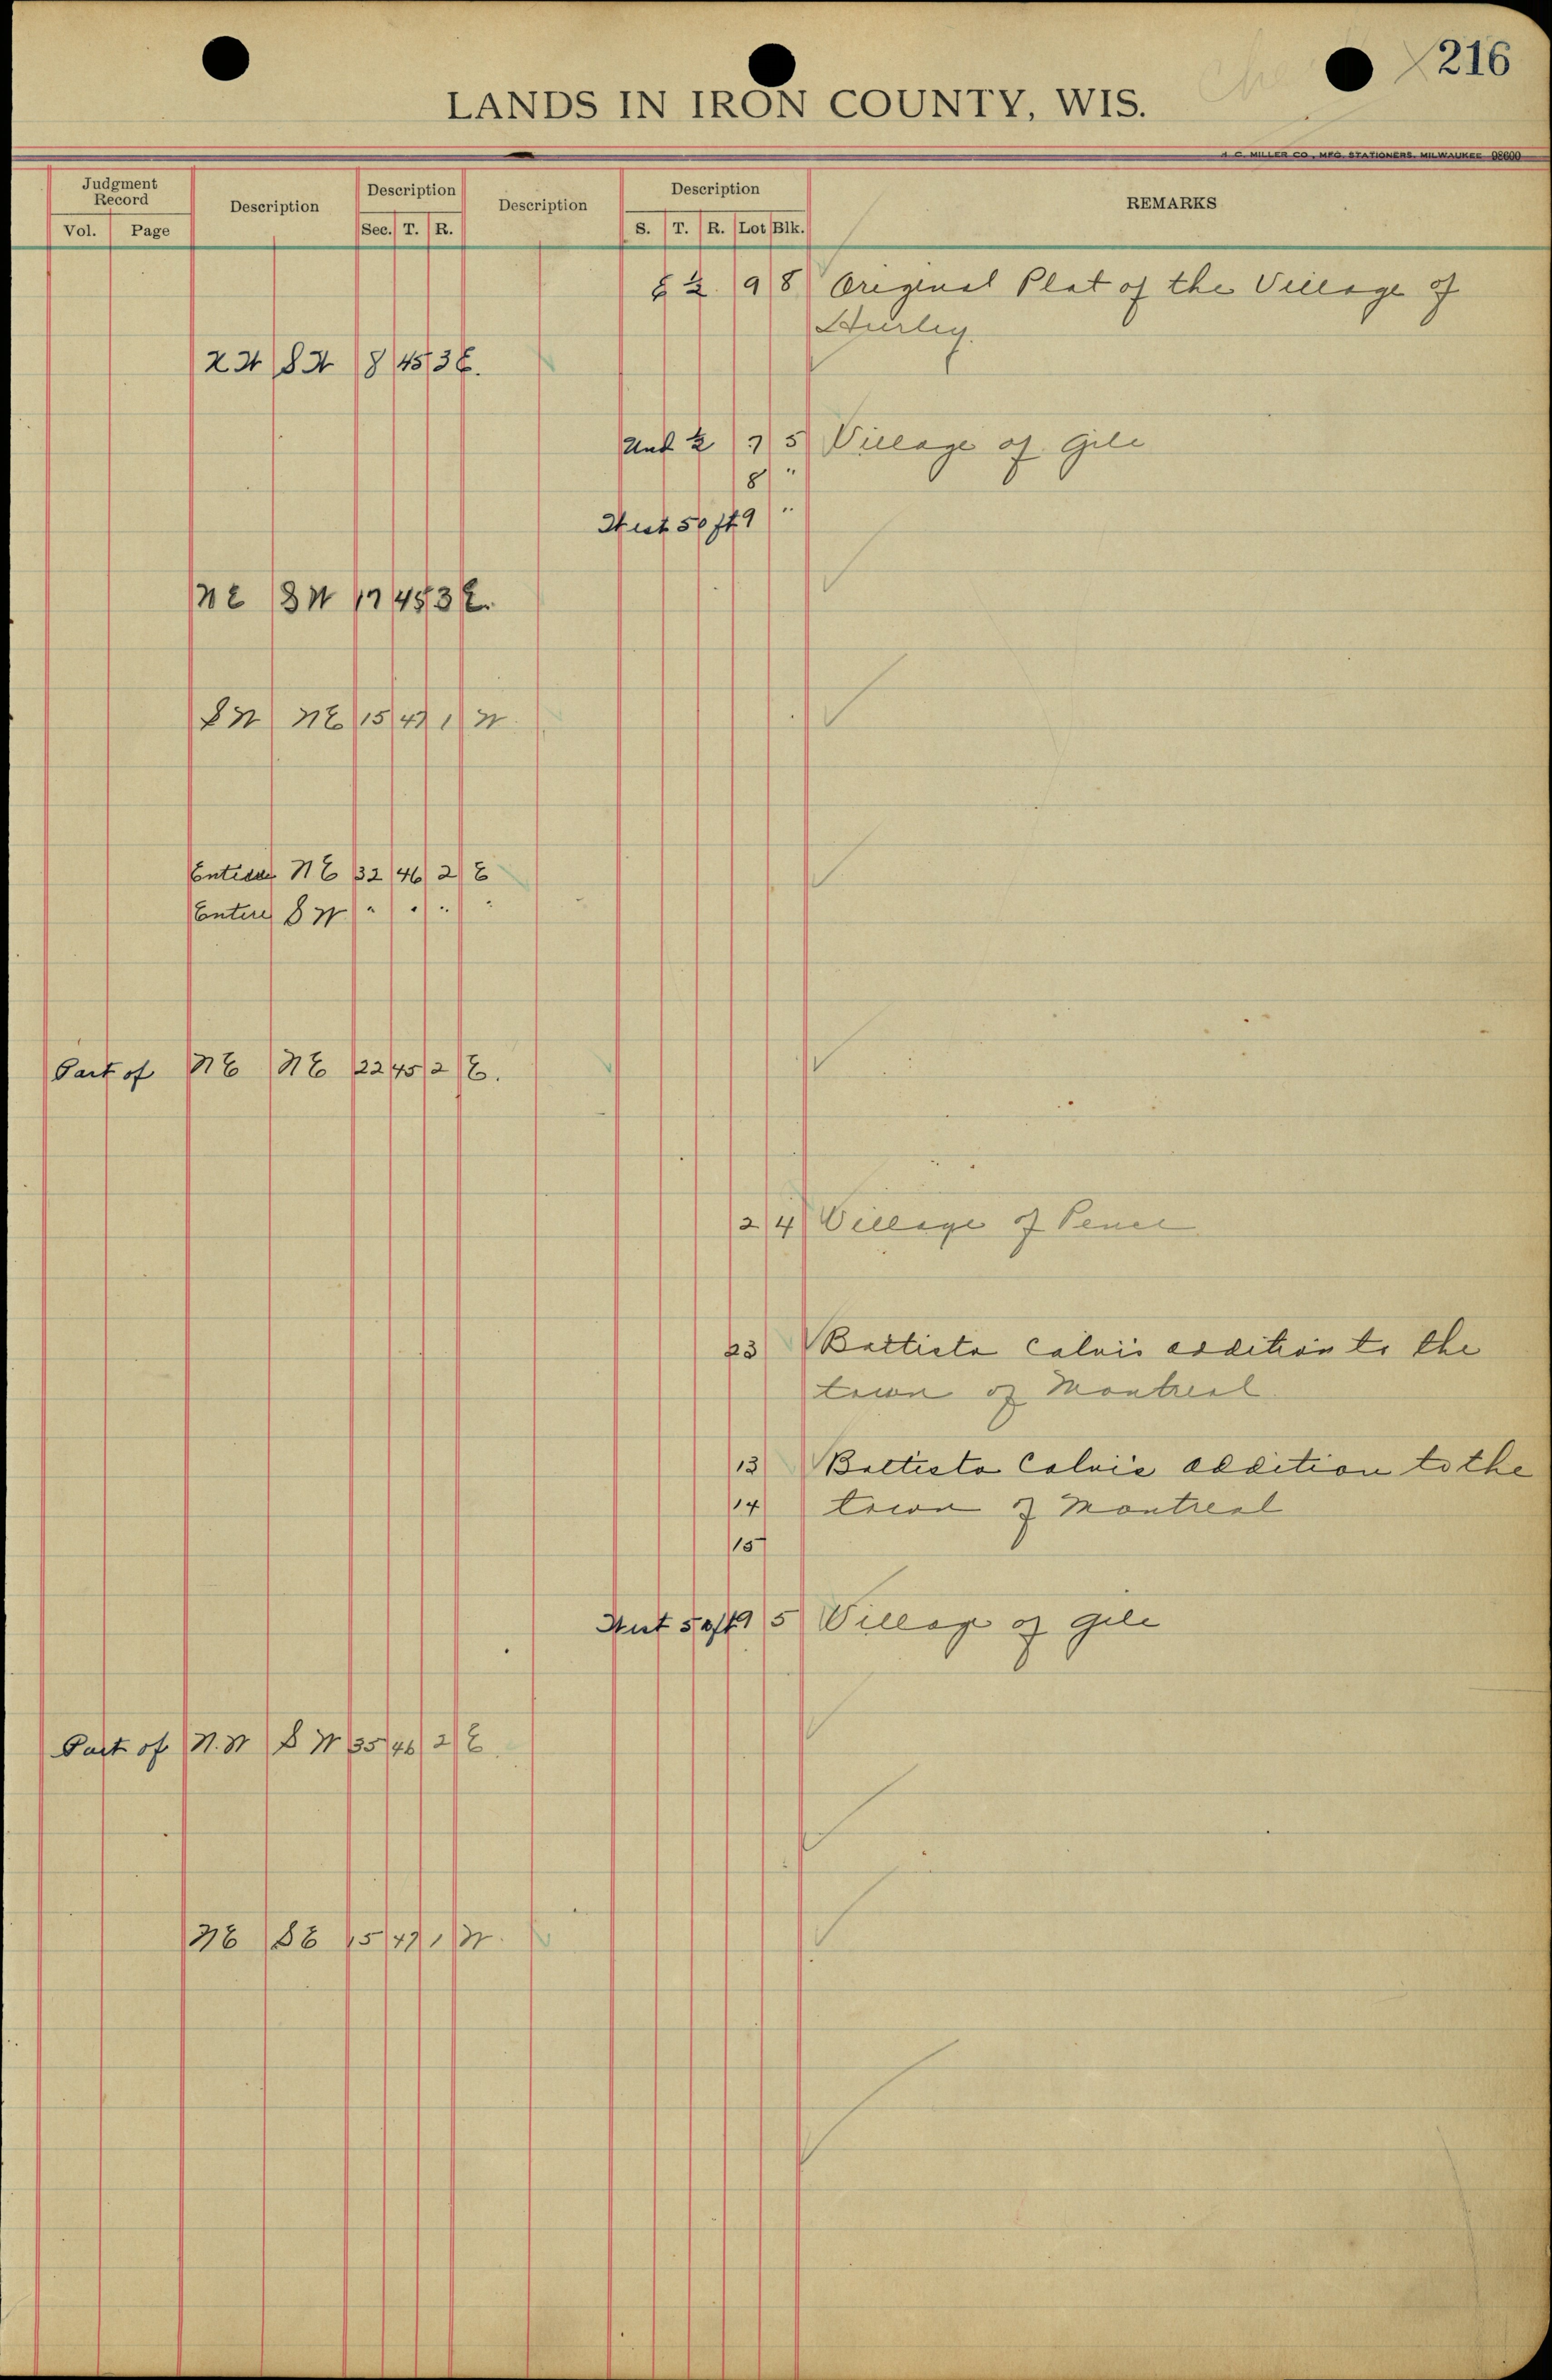 216
LANDS IN IRON COUNTY, WIS.
H. C. MILLER CO., MFG. STATIONERS, MILWAUKEE 98600
Judgment Record Description Description Description Description REMARKS
Vol. Page Sec. T. R. S. T. R. Lot Blk.
E ½ 9 8 Original Plat of the Village of
Hurley.
NW SW 8 45 3 E.
Und ½ 7 5 Village of Gile
8 "
West 50 ft 9 "
NE SW 17 45 3 E.
SW NE 15 47 1 W
Entire NE 32 46 2 E
Entire SW " " " "
Part of NE NE 22 45 2 E.
2 4 Village of Pence
23 Battista Calvi's addition to the
town of Montreal
13 Battista Calvi's addition to the
14 town of Montreal
15
West 50 ft 9 5 Village of Gile
Part of N.W SW 35 46 2 E
NE SE 15 47 1 W.